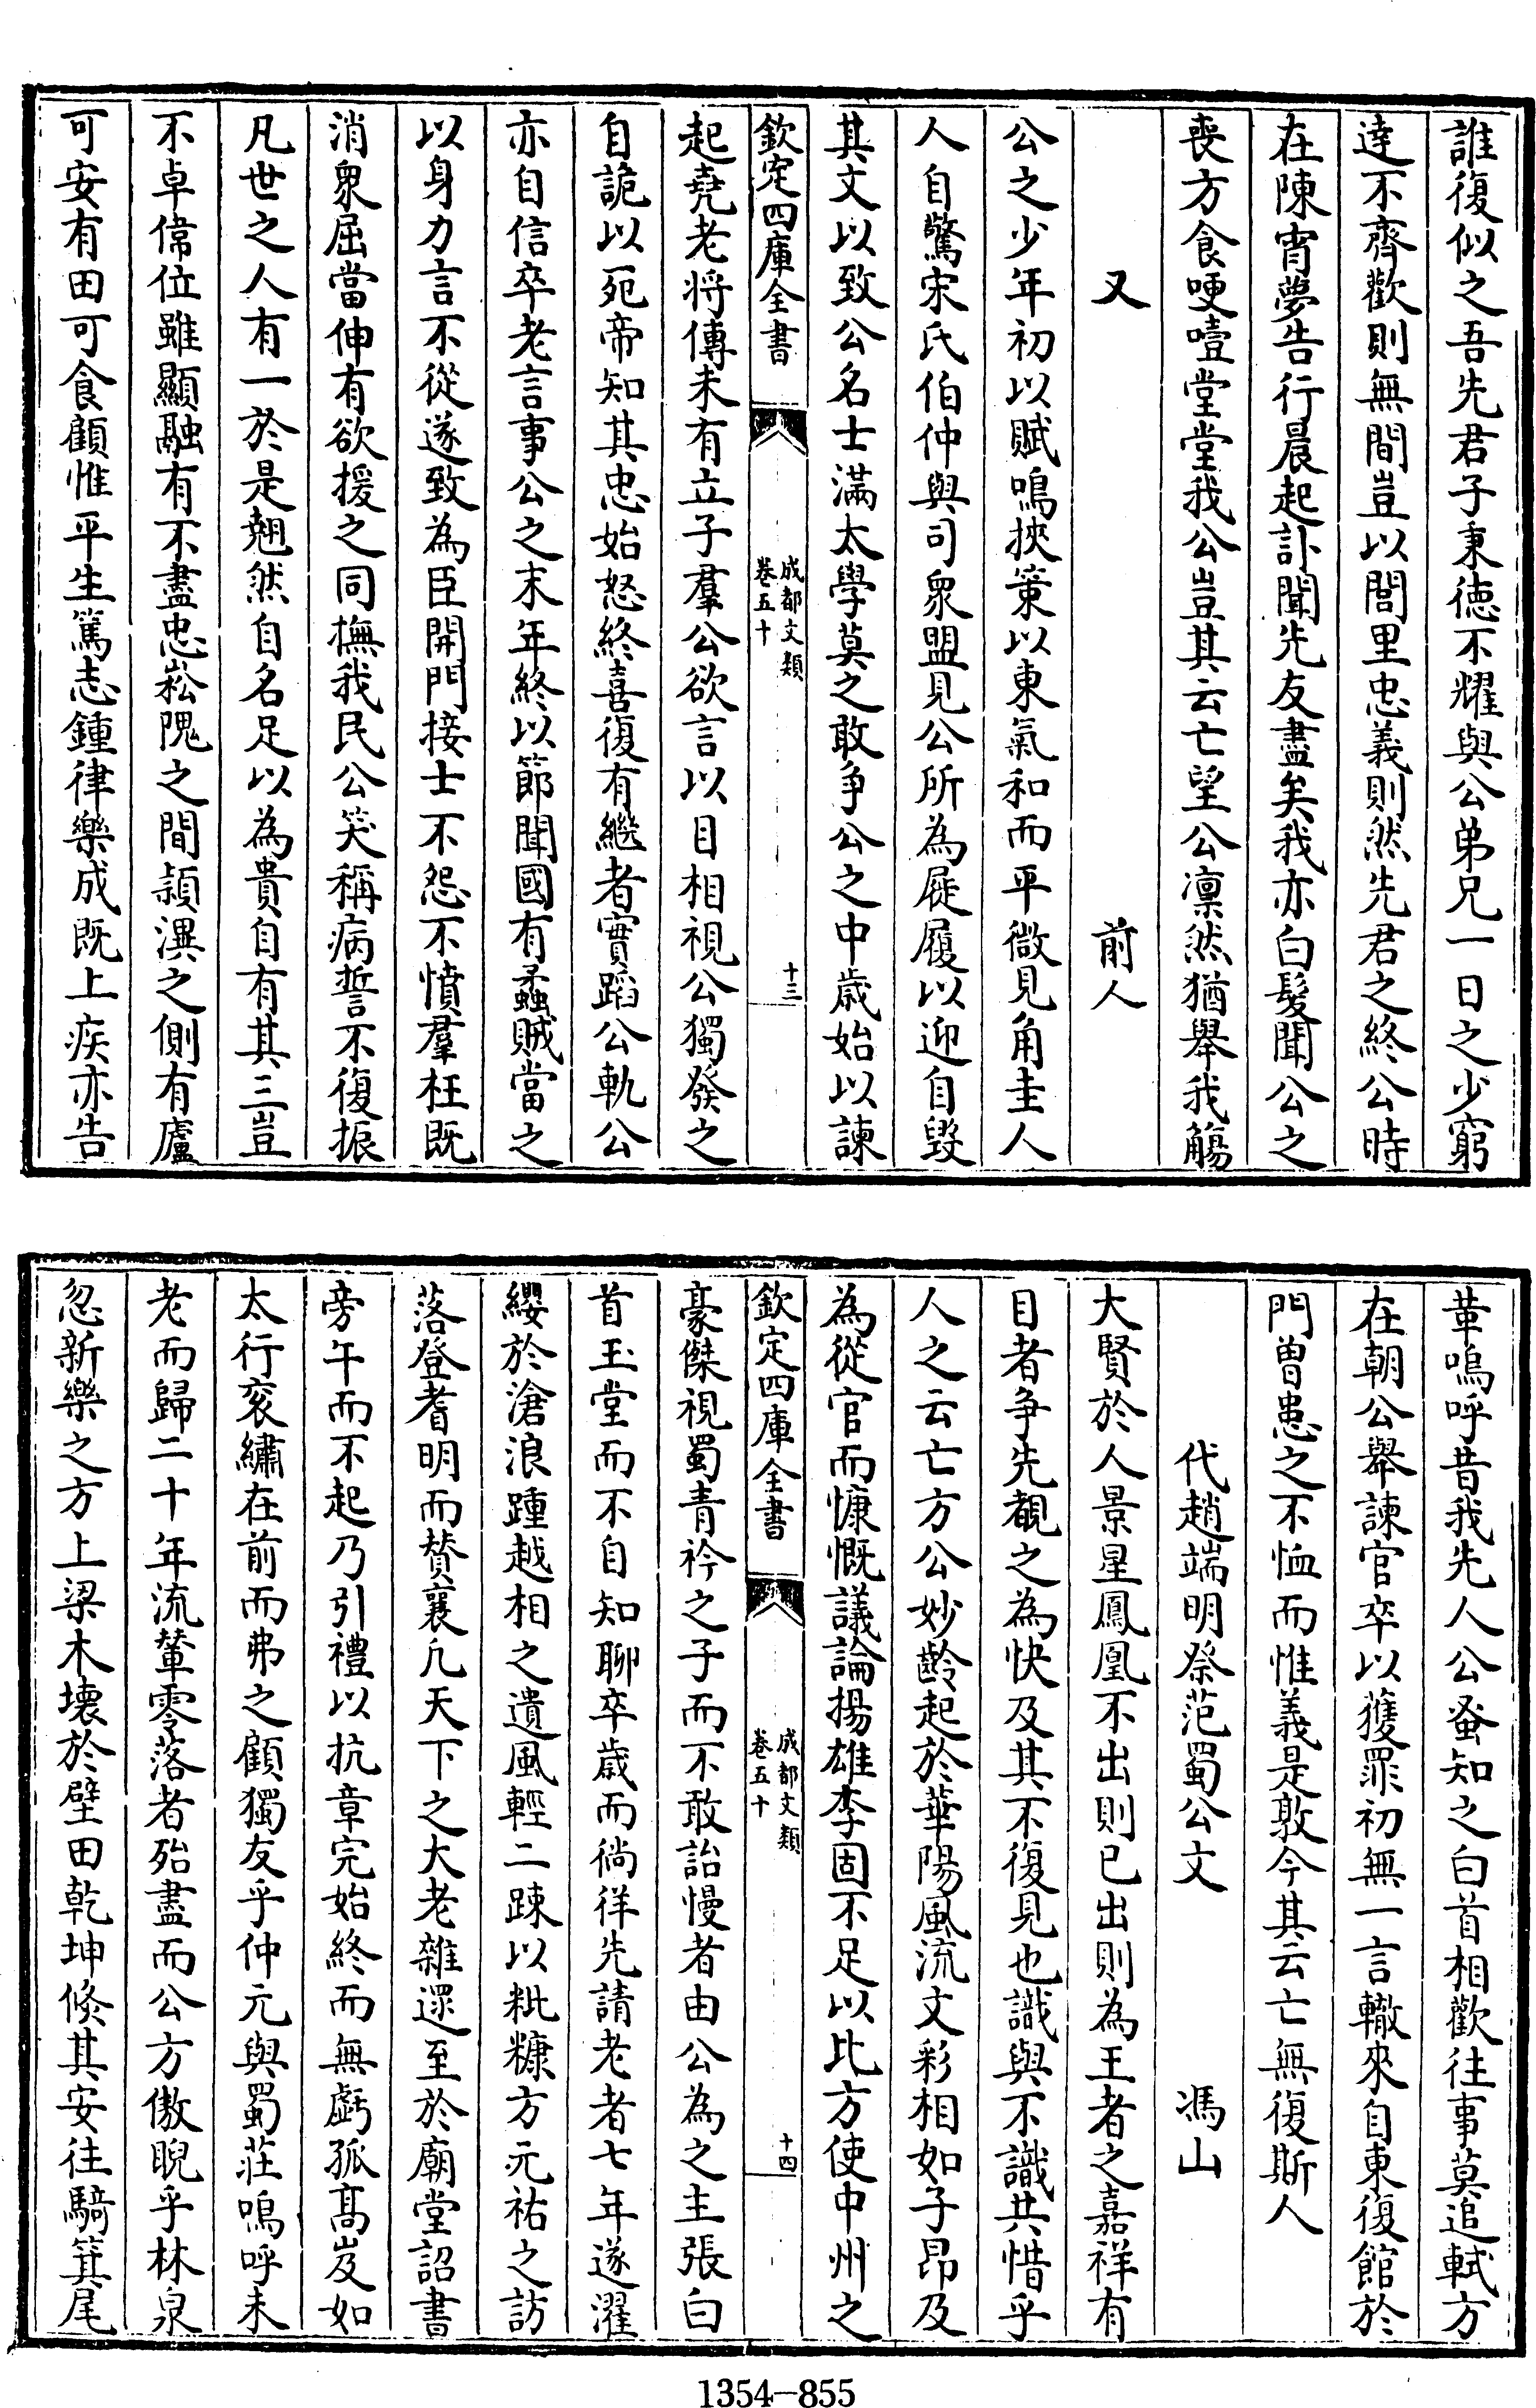 誰復似之吾先君子秉徳不耀與公弟兄一日之少窮
達不齊歡則無間豈以閭里忠義則然先君之終公時
在陳宵夢告行晨起訃聞先友盡矣我亦白髪聞公之
喪方食哽噎堂堂我公豈其云亡望公凛然猶舉我觴
又　前人
公之少年初以賦鳴挾䇿以東氣和而平微見角圭人
人自驚宋氏伯仲與司衆盟見公所為屣履以迎自毀
其文以致公名士滿太學莫之敢争公之中歳始以諫
欽定四庫全書　成都文類　卷五十　十三
起堯老将傳未有立子羣公欲言以目相視公獨發之
自詭以死帝知其忠始怒終喜復有繼者實蹈公軌公
亦自信卒老言事公之末年終以節聞國有蟊賊當之
以身力言不從遂致為臣開門接士不怨不憤羣枉既
消衆屈當伸有欲援之同撫我民公笑稱病誓不復振
凡世之人有一於是翹然自名足以為貴自有其三豈
不卓偉位雖顯融有不盡忠崧隗之間潁淏之側有廬
可安有田可食顧惟平生篤志鍾律樂成既上疾亦告
革嗚呼昔我先人公蚤知之白首相歡往事莫追軾方
在朝公舉諫官卒以獲罪初無一言轍來自東復館於
門曾患之不恤而惟義是敦今其云亡無復斯人
代趙端明祭范蜀公文　馮山
大賢於人景星鳳凰不出則已出則為王者之嘉祥有
目者争先覩之為快及其不復見也識與不識共惜乎
人之云亡方公妙齡起於華陽風流文彩相如子昂及
為從官而慷慨議論揚雄李固不足以比方使中州之
欽定四庫全書　成都文類　卷五十　十四
豪傑視蜀青衿之子而不敢詒慢者由公為之主張白
首玉堂而不自知聊卒歳而徜徉先請老者七年遂濯
纓於滄浪踵越相之遺風輕二踈以粃糠方元祐之訪
落登耆明而賛襄凢天下之大老雜遝至於廟堂詔書
旁午而不起乃引禮以抗章完始終而無虧孤髙岌如
太行衮繡在前而弗之顧獨友乎仲元與蜀莊嗚呼未
老而歸二十年流輩零落者殆盡而公方傲睨乎林泉
忽新樂之方上梁木壊於壁田乾坤倏其安往騎箕尾
1354—855